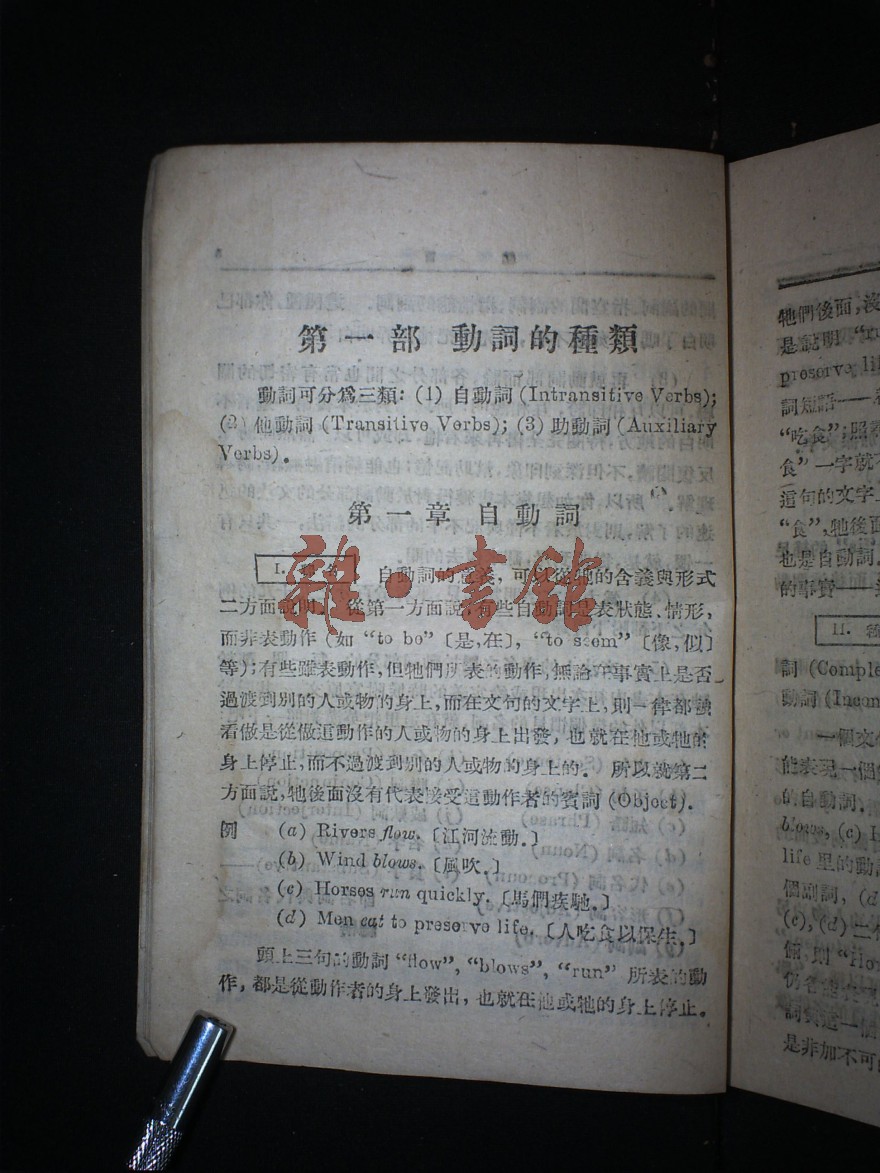 第一部 動詞的種類
動詞可分爲三類: (1) 自動詞 (Intransitive Verbs);
(2) 他動詞 (Transitive Verbs); (3) 助動詞 (Auxiliary
Verbs)。
第一章 自動詞
I. 自動詞的意義, 可以從牠的含義與形式
二方面説明。 從第一方面説, 有些自動詞是表狀態、情形,
而非表動作 (如 “to be” 〔是,在〕, “to seem” 〔像,似〕
等); 有些雖表動作, 但牠們所表的動作, 無論在事實上是否
過渡到別的人或物的身上, 而在文句的文字上, 則一律都
看做是從做這動作的人或物的身上出發, 也就在他或牠的
身上停止, 而不過渡到別的人或物的身上的。 所以就第二
方面説, 牠後面沒有代表接受這動作者的賓詞 (Object)。
例 (a) Rivers flow. 〔江河流動。〕
(b) Wind blows. 〔風吹。〕
(c) Horses run quickly. 〔馬們疾馳。〕
(d) Men eat to preserve life. 〔人吃食以保生。〕
頭上三句的動詞 “flow”, “blows”, “run” 所表的動
作, 都是從動作者的身上發出, 也就在他或牠的身上停止。
雜·書館
牠們後面, 沒
是説明 “ru
preserve lif
詞短語——
“吃食”; 照
食” 一字就
這句的文字上
“食”, 牠後面
也是自動詞。
的事實——
II.
詞 (Comple
動詞 (Incom
一個文
能表現一個
的自動詞。
blows, (c) H
life 里的動
個副詞, (d
(c), (d) 二
則 “flo
是非加不可